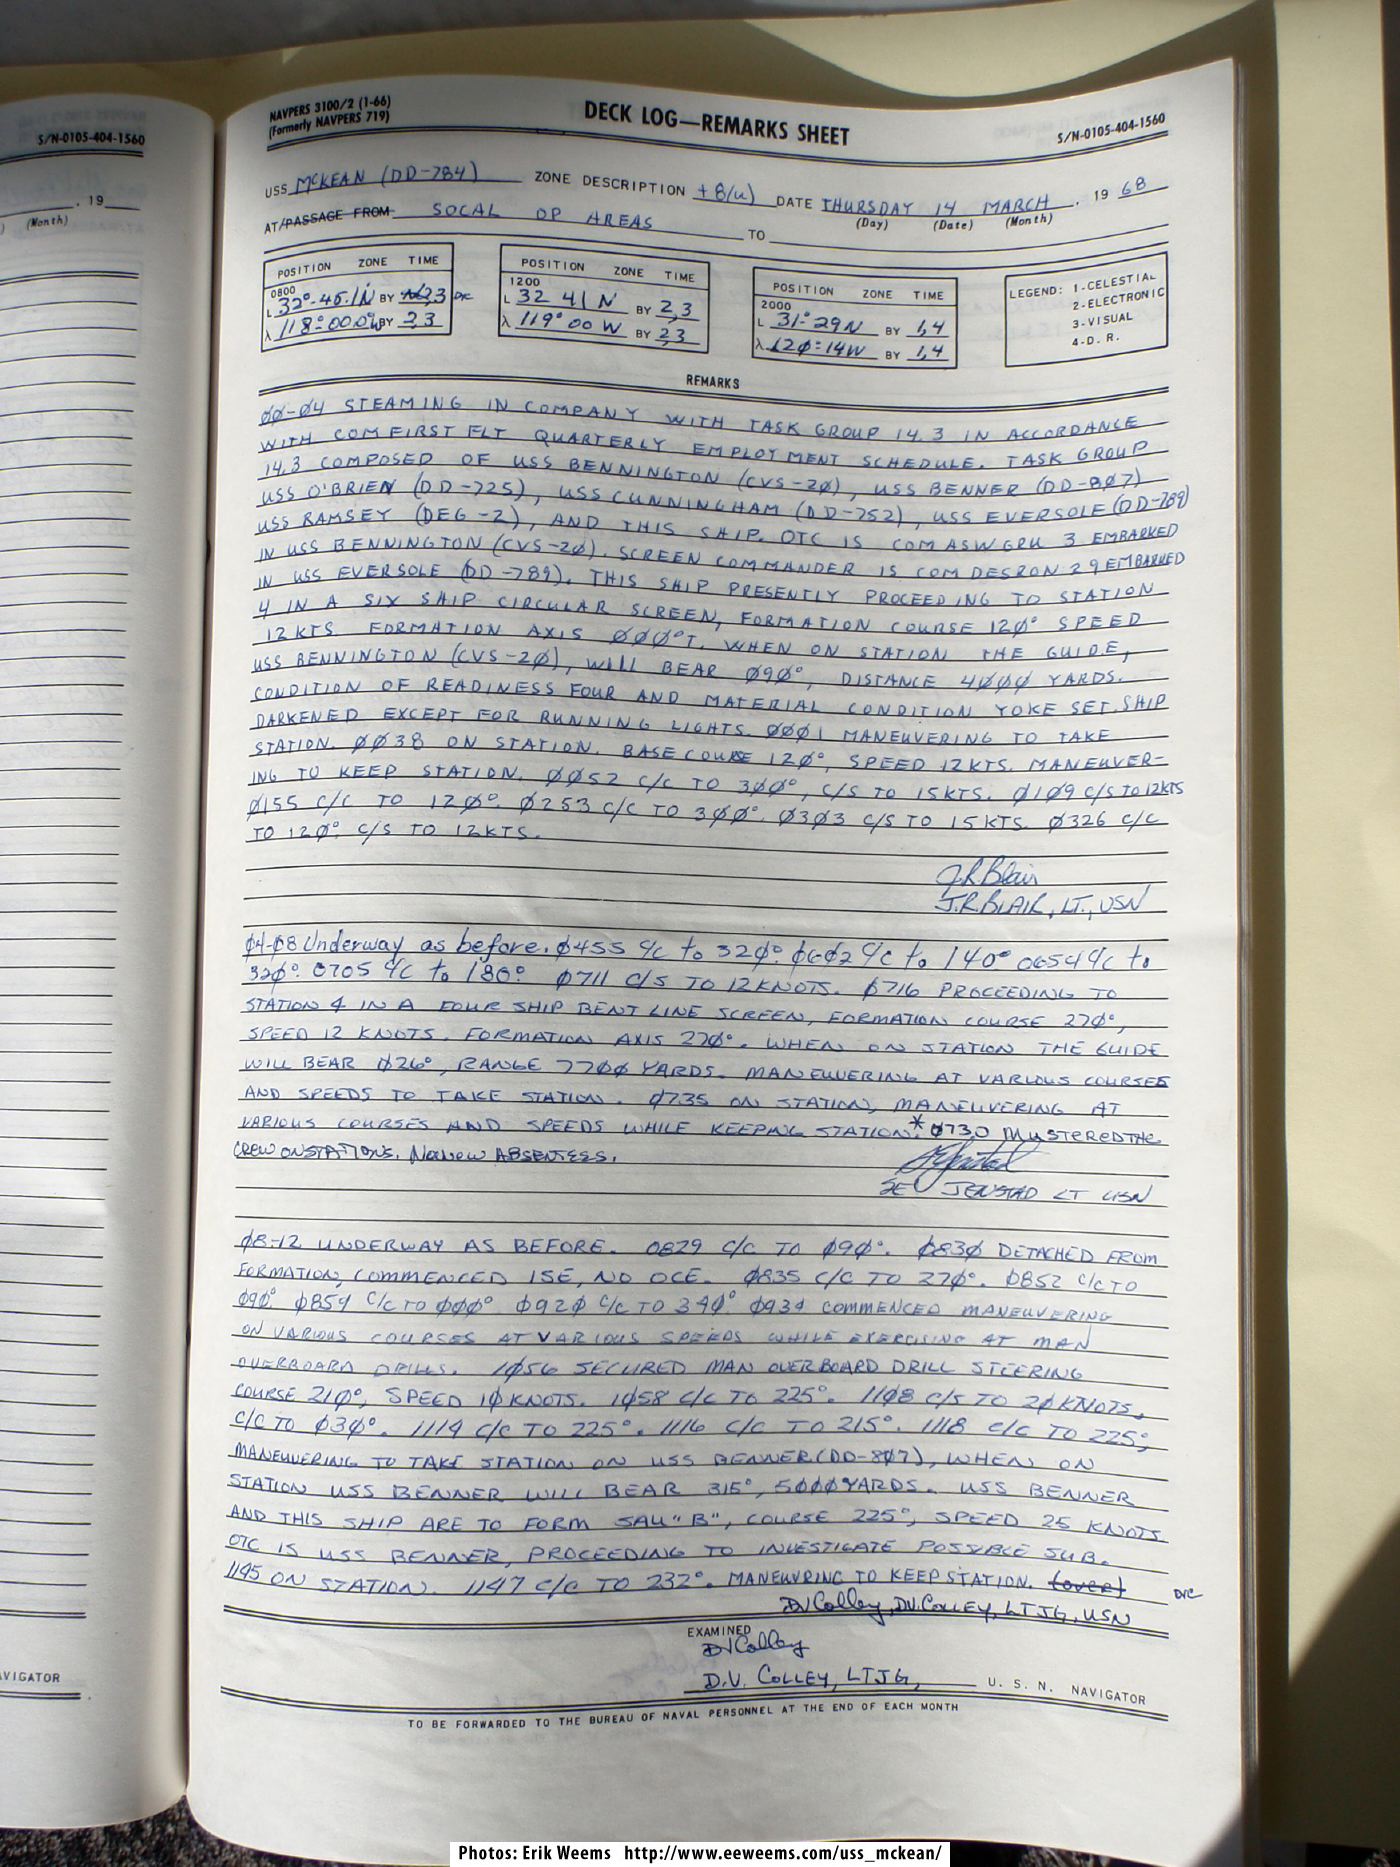 S/N-0105-404-1560
, 19
(Month)
AVIGATOR
NAVPERS 3100/2 (1-66)
(Formerly NAVPERS 719)
DECK LOG—REMARKS SHEET
S/N-0105-404-1560
USS McKEAN (DD-784) ZONE DESCRIPTION +8(U) DATE THURSDAY 14 MARCH , 19 68
(Day) (Date) (Month)
AT/PASSAGE FROM SOCAL OP AREAS TO
POSITION ZONE TIME
0800
L 32°-45.1N BY 2,3 DVC
λ 118°-00.0W BY 2,3
POSITION ZONE TIME
1200
L 32 41 N BY 2,3
λ 119° 00 W BY 2,3
POSITION ZONE TIME
2000
L 31°-29N BY 1,4
λ 12Ø°-14W BY 1,4
LEGEND: 1-CELESTIAL
2-ELECTRONIC
3-VISUAL
4-D. R.
REMARKS
ØØ-Ø4 STEAMING IN COMPANY WITH TASK GROUP 14.3 IN ACCORDANCE
WITH COMFIRSTFLT QUARTERLY EMPLOYMENT SCHEDULE. TASK GROUP
14.3 COMPOSED OF USS BENNINGTON (CVS-2Ø), USS BENNER (DD-8Ø7)
USS O'BRIEN (DD-725), USS CUNNINGHAM (DD-752), USS EVERSOLE (DD-789)
USS RAMSEY (DEG-2), AND THIS SHIP. OTC IS COMASWGRU 3 EMBARKED
IN USS BENNINGTON (CVS-2Ø). SCREEN COMMANDER IS COMDESRON 29 EMBARKED
IN USS EVERSOLE (DD-789). THIS SHIP PRESENTLY PROCEEDING TO STATION
4 IN A SIX SHIP CIRCULAR SCREEN, FORMATION COURSE 12Ø° SPEED
12KTS FORMATION AXIS ØØØ°T. WHEN ON STATION THE GUIDE,
USS BENNINGTON (CVS-2Ø), WILL BEAR Ø9Ø°, DISTANCE 4ØØØ YARDS.
CONDITION OF READINESS FOUR AND MATERIAL CONDITION YOKE SET. SHIP
DARKENED EXCEPT FOR RUNNING LIGHTS. ØØØ1 MANEUVERING TO TAKE
STATION. ØØ38 ON STATION. BASE COURSE 12Ø°, SPEED 12KTS. MANEUVER-
ING TO KEEP STATION. ØØ52 C/C TO 3ØØ°, C/S TO 15KTS. Ø1Ø9 C/S TO 12KTS
Ø155 C/C TO 12Ø°. Ø253 C/C TO 3ØØ°. Ø3Ø3 C/S TO 15KTS. Ø326 C/C
TO 12Ø°. C/S TO 12KTS.
J.R.Blair
J.R.BLAIR, LT., USN
Ø4-Ø8 Underway as before. Ø455 C/C to 32Ø°. Ø6Ø2 C/C to 140° 0654 C/C to
32Ø°. 0705 C/C to 180°. Ø711 C/S TO 12 KNOTS. Ø716 PROCEEDING TO
STATION 4 IN A FOUR SHIP BENT LINE SCREEN, FORMATION COURSE 270°,
SPEED 12 KNOTS. FORMATION AXIS 270°. WHEN ON STATION THE GUIDE
WILL BEAR Ø26°, RANGE 77ØØ YARDS. MANEUVERING AT VARIOUS COURSES
AND SPEEDS TO TAKE STATION. Ø735 ON STATION, MANEUVERING AT
VARIOUS COURSES AND SPEEDS WHILE KEEPING STATION.* Ø730 MUSTERED THE
CREW ON STATIONS. No new ABSENTEES.
JENSTAD LT USN
Ø8-12 UNDERWAY AS BEFORE. 0829 C/C TO Ø9Ø°. Ø83Ø DETACHED FROM
FORMATION, COMMENCED ISE, NO OCE. Ø835 C/C TO 27Ø°. Ø852 C/C TO
Ø9Ø°. Ø854 C/C TO ØØØ°. Ø92Ø C/C TO 34Ø°. Ø934 COMMENCED MANEUVERING
ON VARIOUS COURSES AT VARIOUS SPEEDS WHILE EXERCISING AT MAN
OVERBOARD DRILLS. 1Ø56 SECURED MAN OVERBOARD DRILL STEERING
COURSE 21Ø°, SPEED 1Ø KNOTS. 1Ø58 C/C TO 225°. 11Ø8 C/S TO 2Ø KNOTS,
C/C TO Ø3Ø°. 1114 C/C TO 225°. 1116 C/C TO 215°. 1118 C/C TO 225°,
MANEUVERING TO TAKE STATION ON USS BENNER (DD-8Ø7), WHEN ON
STATION USS BENNER WILL BEAR 315°, 5ØØØ YARDS. USS BENNER
AND THIS SHIP ARE TO FORM SAU "B", COURSE 225°, SPEED 25 KNOTS
OTC IS USS BENNER, PROCEEDING TO INVESTIGATE POSSIBLE SUB.
1145 ON STATION. 1147 C/C TO 232°. MANEUVRING TO KEEP STATION. (over) DVC
DVColley, D.V. COLLEY, LTJG, USN
EXAMINED
DVColley
D.V. COLLEY, LTJG, U. S. N. NAVIGATOR
TO BE FORWARDED TO THE BUREAU OF NAVAL PERSONNEL AT THE END OF EACH MONTH
Photos: Erik Weems http://www.eeweems.com/uss_mckean/